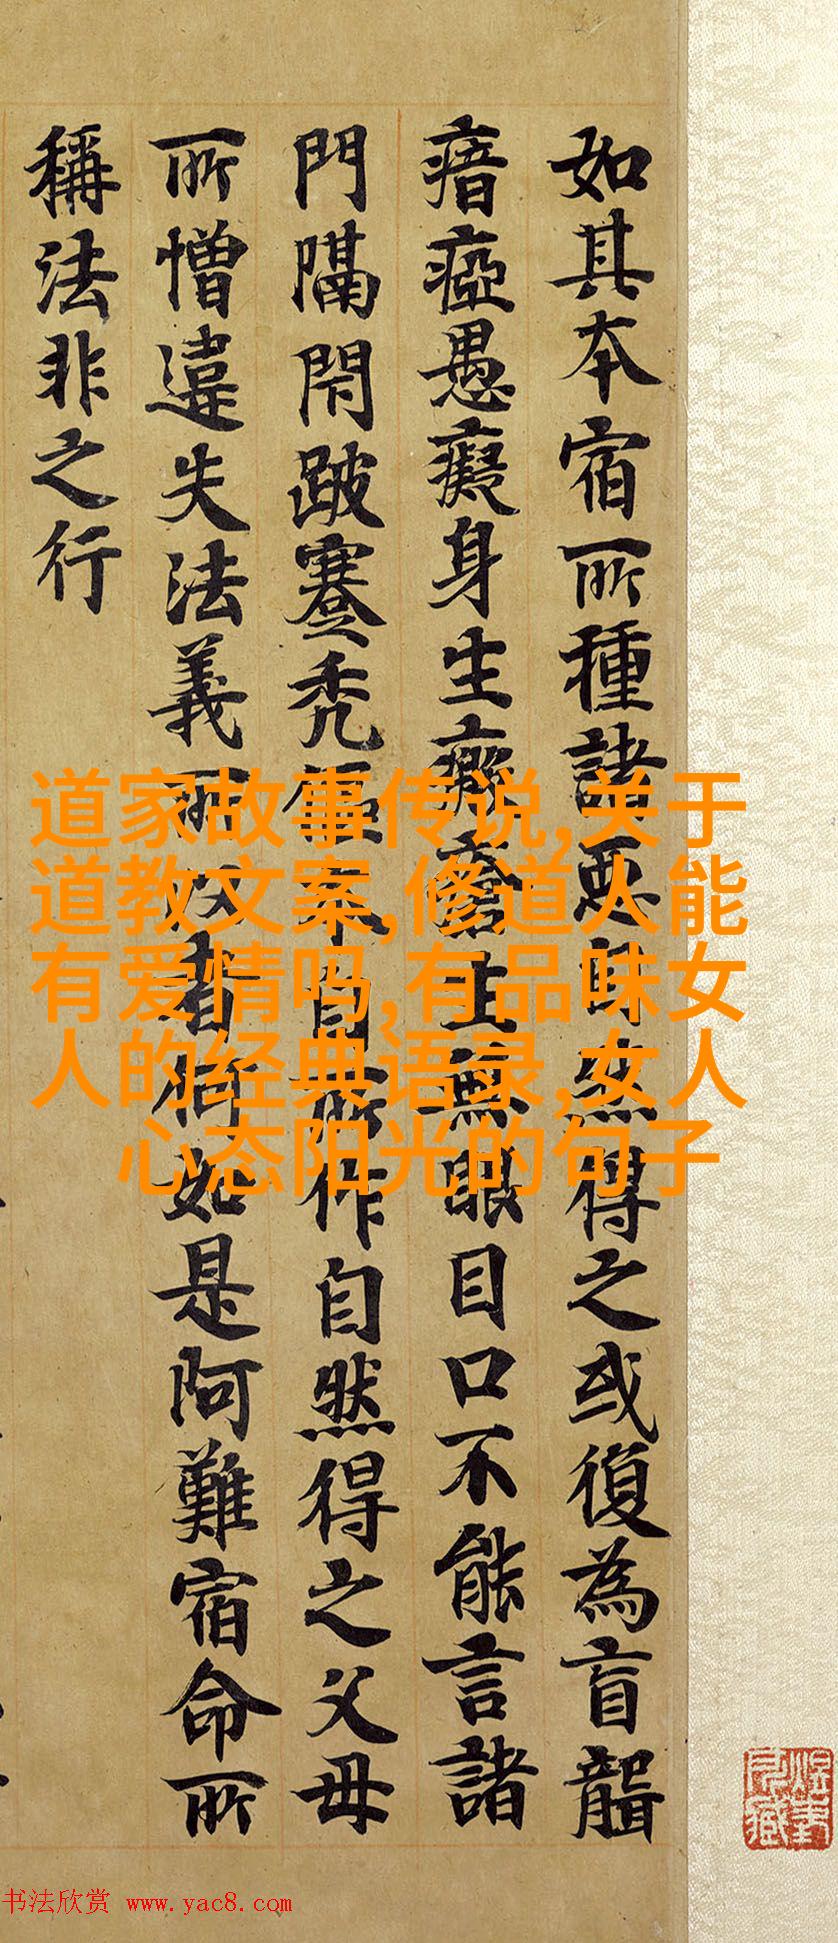 如其本宿所種諸惡自然得之或復為盲聾
瘖瘂愚癡身生瘡生無眼目口不能言諸
門隔閇跛蹇禿傴本自所作自然得之父母
所憎違失法義所以者何如是阿難宿命所
稱法非之行
道家故事传说,关于
道教文案,修道人能
有爱情吗,有品味女
人的经典语录,女人
心态阳光的句子
书法欣赏 www.yac8.com